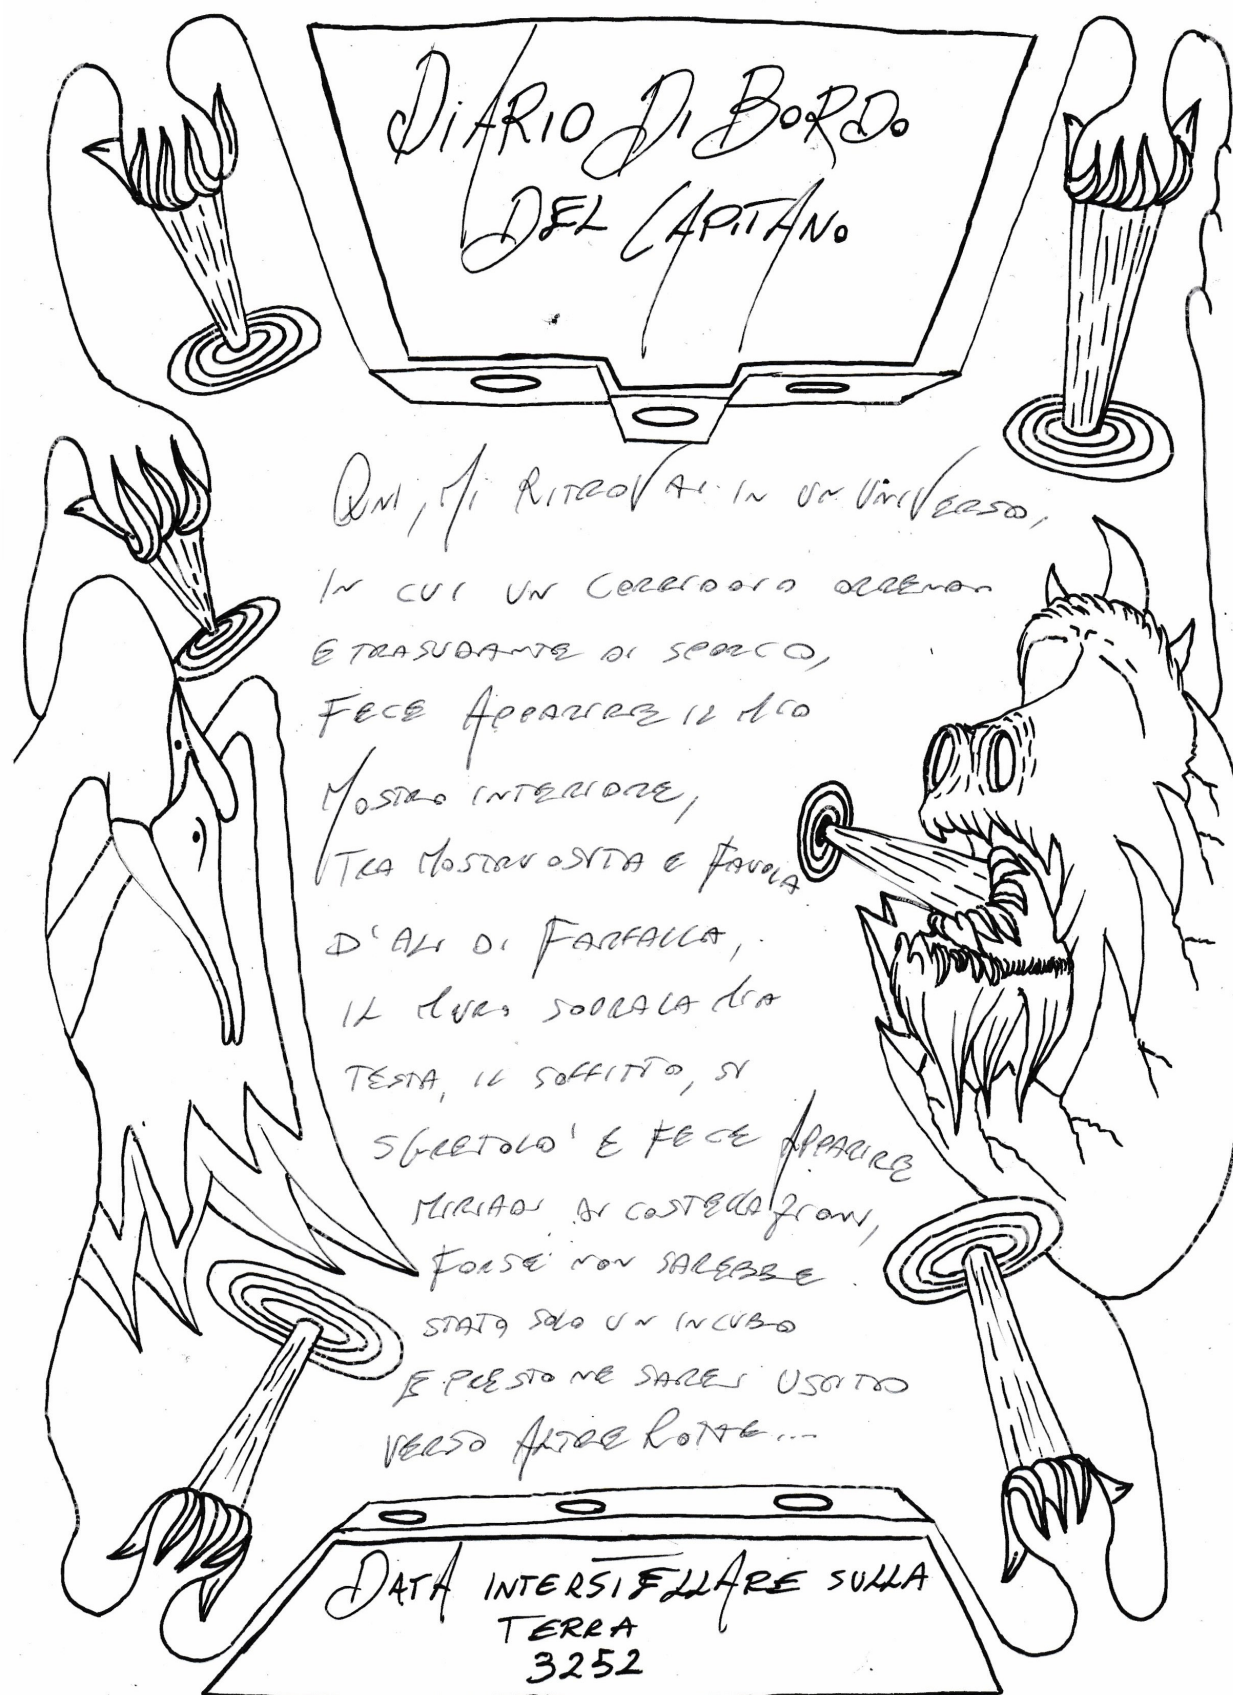 DIARIO DI BORDO
DEL CAPITANO
QUI, MI RITROVAI IN UN UNIVERSO,
IN CUI UN CORRIDOIO ORRENDO
E TRASUDANTE DI SPORCO,
FECE APPARIRE IL MIO
MOSTRO INTERIORE,
TRA MOSTRUOSITA E FAVOLA
D'ALI DI FARFALLA,
IL MURO SOPRA LA MIA
TESTA, IL SOFFITTO, SI
SGRETOLO' E FECE APPARIRE
MIRIADI DI COSTELLAZIONI,
FORSE NON SAREBBE
STATO SOLO UN INCUBO
E PRESTO NE SAREI USCITO
VERSO ALTRE ROTTE...
DATA INTERSTELLARE SULLA
TERRA
3252